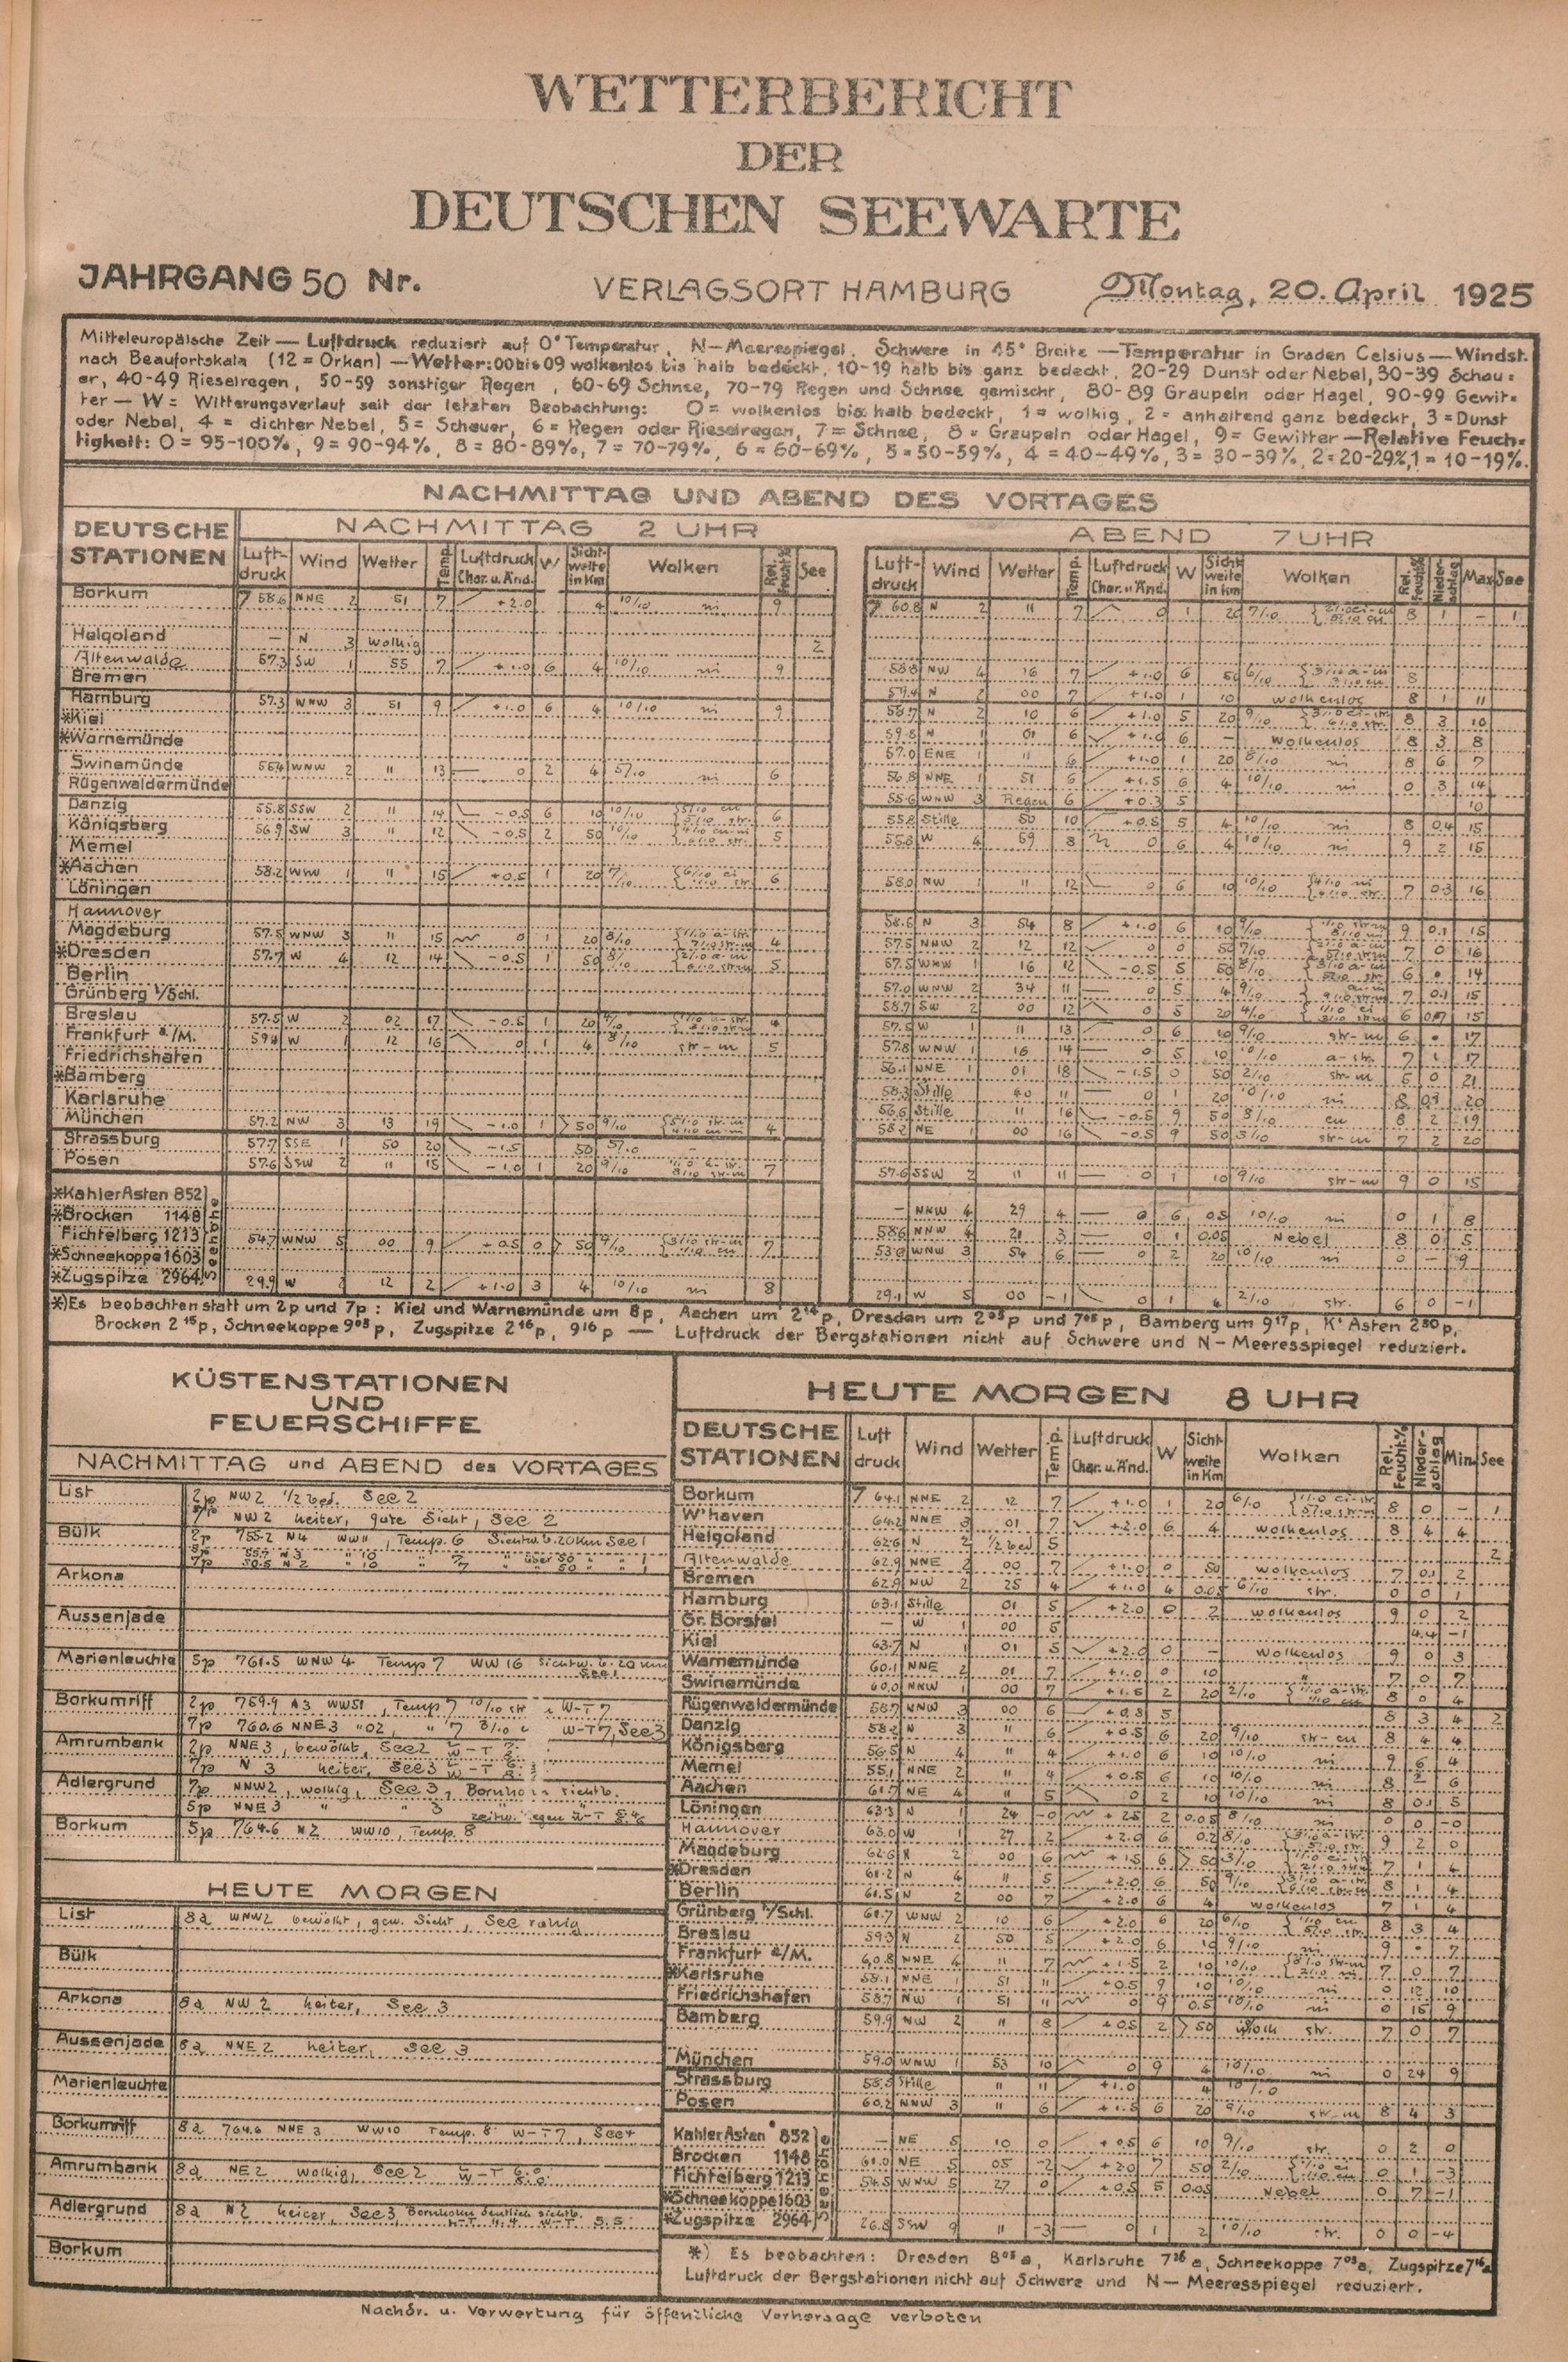 WETTERBERICHT
DER
DEUTSCHEN SEEWARTE
JAHRGANG 50 Nr.
VERLAGSORT HAMBURG
Montag, 20. April 1925
Mitteleuropäische Zeit — Luftdruck reduziert auf 0° Temperatur, N—Meeresspiegel, Schwere in 45° Breite —Temperatur in Graden Celsius — Windst.
nach Beaufortskala (12 = Orkan) — Wetter: 00 bis 09 wolkenlos bis halb bedeckt, 10-19 halb bis ganz bedeckt, 20-29 Dunst oder Nebel, 30-39 Schau=
er, 40-49 Rieselregen, 50-59 sonstiger Regen, 60-69 Schnee, 70-79 Regen und Schnee gemischt, 80-89 Graupeln oder Hagel, 90-99 Gewit=
ter — W = Witterungsverlauf seit der letzten Beobachtung: 0 = wolkenlos bis halb bedeckt, 1 = wolkig, 2 = anhaltend ganz bedeckt, 3 = Dunst
oder Nebel, 4 = dichter Nebel, 5 = Schauer, 6 = Regen oder Rieselregen, 7 = Schnee, 8 = Graupeln oder Hagel, 9 = Gewitter — Relative Feuch=
tigkeit: 0 = 95-100%, 9 = 90-94%, 8 = 80-89%, 7 = 70-79%, 6 = 60-69%, 5 = 50-59%, 4 = 40-49%, 3 = 30-39%, 2 = 20-29%, 1 = 10-19%.
NACHMITTAG UND ABEND DES VORTAGES
DEUTSCHE STATIONEN
NACHMITTAG 2 UHR
ABEND 7 UHR
Luft-druck Wind Wetter Temp. Luftdruck Char. u. Änd. W Sicht-weite in Km Wolken Rel. Feucht.% See
Luft-druck Wind Wetter Temp. Luftdruck Char. u. Änd. W Sicht-weite in Km Wolken Rel. Feucht.% Nieder-schlag Max See
Borkum 758.6 NNE 2 51 7 +2.0 4 10/10 ni 9
760.8 N 2 11 7 0 1 20 7/10 8 1 — 1
Helgoland — N 3 wolkig 2
Altenwalde 57.3 SW 1 55 7 +1.0 6 4 10/10 ni 9
58.8 NW 4 16 7 +1.0 6 50 6/10 8
Bremen
59.4 N 2 00 7 +1.0 1 10 wolkenlos 8 1 11
Hamburg 57.3 WNW 3 51 9 +1.0 6 4 10/10 ni 9
58.7 N 2 10 6 +1.0 5 20 9/10 8 3 10
*Kiel
59.8 N 1 01 6 +1.0 6 — wolkenlos 8 3 8
*Warnemünde
57.0 ENE 11 6 +1.0 1 20 8/10 ni 8 6 7
Swinemünde 55.4 WNW 2 11 13 — 0 2 4 ni 6
56.8 NNE 1 51 6 +1.5 6 4 10/10 ni 0 3 14
Rügenwaldermünde
55.6 WNW 3 Regen 6 +0.3 5 10
Danzig 55.8 SSW 2 11 14 -0.5 6 10 10/10 6
55.8 Stille 50 10 +0.5 5 4 10/10 ni 8 0.4 15
Königsberg 56.9 SW 3 11 12 -0.5 2 50 10/10 5
55.8 W 4 59 8 0 6 4 10/10 ni 9 2 15
Memel
*Aachen 58.2 1 11 15 +0.5 1 20 7/10 6
58.0 NW 1 11 12 0 6 10 10/10 7 0.3 16
Löningen
Hannover
58.6 N 3 54 8 +1.0 6 10 9/10 9 0.1 15
Magdeburg 57.5 WNW 3 11 15 0 1 20 8/10 4
57.5 NNW 2 12 12 0 0 50 7/10 7 0 16
*Dresden 57.7 W 4 12 14 -0.5 1 50 8/10 5
57.5 WNW 1 16 12 -0.5 5 50 8/10 6 . 14
Berlin
57.0 WNW 2 34 11 — 0 5 4 9/10 7 0.1 15
Grünberg i/Schl.
58.7 SW 2 00 12 0 5 20 4/10 6 15
Breslau 57.5 W 2 02 17 -0.5 1 20 4
57.5 W 11 13 — 0 6 9/10 str-m 6 . 17
Frankfurt a./M. 59.4 W 1 12 16 0 1 4 8/10 str-m 5
57.8 WNW 1 16 14 — 0 5 10 10/10 a-str. 7 1 17
Friedrichshafen
56.1 NNE 1 01 18 -1.5 0 50 2/10 str-m 5 0 21
*Bamberg
58.3 Stille 11 — 0 1 20 10/10 ni 8 20
Karlsruhe
56.6 Stille 11 16 -0.5 9 50 8/10 cu 8 2 19
München 57.2 NW 3 13 19 -1.0 1 > 50 9/10 4
58.2 NE 1 00 16 -0.5 9 50 3/10 str-m 7 2 20
Strassburg 57.7 SSE 1 50 20 -1.5 50
Posen 57.6 SSW 2 11 15 -1.0 1 20 9/10 7
57.6 SSW 2 11 11 — 0 1 10 9/10 str-m 9 0 15
Seehöhe
*Kahler Asten 852
— NNW 4 29 4 — 0 6 0.5 10/10 ni 0 1 8
*Brocken 1148
586 NNW 4 21 3 — 0 1 0.05 Nebel 8 0 5
Fichtelberg 1213 54.7 WNW 5 00 9 +0.5 0 > 50 7
53.0 WNW 3 54 6 — 0 2 20 10/10 ni 0 — 9
*Schneekoppe 1603
*Zugspitze 2964 29.9 W 2 12 2 +1.0 3 4 10/10 ni 8
29.1 W 5 00 -1 0 1 4 2/10 str. 6 0 -1
*) Es beobachten statt um 2p und 7p: Kiel und Warnemünde um 8p, Aachen um 2¹⁴p, Dresden um 2⁰⁵p und 7⁰⁵p, Bamberg um 9¹⁷p, K' Asten 2³⁰p,
Brocken 2¹⁵p, Schneekoppe 9⁰³p, Zugspitze 2¹⁶p, 9¹⁶p — Luftdruck der Bergstationen nicht auf Schwere und N—Meeresspiegel reduziert.
KÜSTENSTATIONEN
UND
FEUERSCHIFFE
NACHMITTAG und ABEND des VORTAGES
List 2p NW2 1/2 bed. See 2
7p NW2 heiter, gute Sicht, See 2
Bülk 2p 755.2 N4 WW11, Temp. 6 Sichtw. b. 20 Km See 1
Arkona
Aussenjade
Marienleuchte 5p 761.5 WNW 4 Temp 7 WW 16 Sichtw. b. 20 km
See 1
Borkumriff 2p 759.9 N3 WW51, Temp 7 10/10 str W-T 7
7p 760.6 NNE3 " 02, " 7 W-T 7, See 3
Amrumbank 2p NNE 3, bewölkt, See 2
7p N 3 heiter, See 3
Adlergrund 7p NNW2, wolkig, See 3, Bornholm sichtb.
5p NNE 3 " " 3
Borkum 5p 764.6 N2 WW10, Temp. 8
HEUTE MORGEN
List 8a WNW2 bewölkt, gew. Sicht, See ruhig
Bülk
Arkona 8a NW 2 heiter, See 3
Aussenjade 8a NNE 2 heiter, See 3
Marienleuchte
Borkumriff 8a 764.6 NNE 3 WW10 Temp. 8 W-T 7, See 4
Amrumbank 8a NE 2 wolkig, See 2
Adlergrund 8a N2 heiter, See 3, Bornholm deutlich sichtb.
Borkum
HEUTE MORGEN 8 UHR
DEUTSCHE STATIONEN Luft druck Wind Wetter Temp. Luftdruck Char. u. Änd. W Sicht-weite in Km Wolken Rel. Feucht.% Nieder-schlag Min. See
Borkum 764.1 NNE 2 12 7 +1.0 1 20 6/10 8 0 — 1
W'haven 64.2 NNE 3 01 7 +2.0 6 4 wolkenlos 8 4 4
Helgoland 62.6 N 2 1/2 bed 5 2
Altenwalde 62.9 NNE 2 00 7 +1.0 0 50 wolkenlos 7 0.1 2
Bremen 62.9 NW 2 25 4 +1.0 4 0.05 6/10 str. 0 0 1
Hamburg 63.1 Stille 01 5 +2.0 0 2 wolkenlos 9 0 2
Gr. Borstel — W 1 00 5 4.4 -1
Kiel 63.7 N 1 01 5 +2.0 0 — wolkenlos 9 0 3
Warnemünde 60.1 NNE 2 01 7 +1.0 0 10 " 7 0 7
Swinemünde 60.0 NNW 1 00 7 +1.5 2 20 2/10 8 0 4
Rügenwaldermünde 58.7 NNW 3 00 6 +0.8 5 8 3 4 2
Danzig 58.2 N 3 11 6 +0.5 6 20 9/10 str-cu 8 4 4
Königsberg 56.5 N 4 11 4 +1.0 6 10 10/10 ni 9 6 4
Memel 55.1 NNE 2 11 4 +0.5 6 10 10/10 ni 8 6
Aachen 61.7 NE 4 11 5 0 2 10 10/10 ni 8 0.1 5
Löningen 63.3 N 1 24 -0 + 2.5 2 0.05 8/10 ni 0 0 -0
Hannover 63.0 W 1 27 2 +2.0 6 0.2 8/10 9 2 0
Magdeburg 62.6 N 2 00 6 +1.5 6 > 50 3/10 7 1 4
*Dresden 61.2 N 4 11 5 +2.0 6 50 9/10 8 1 4
Berlin 61.5 N 2 00 7 +2.0 6 4 wolkenlos 7 1 4
Grünberg i/Schl. 61.7 WNW 2 10 6 +2.0 6 20 6/10 8 3 4
Breslau 59.3 N 2 50 5 +2.0 6 10 9/10 ni 9 . 7
Frankfurt a/M. 60.8 NNE 4 11 7 +1.5 2 10 10/10 7 0 7
*Karlsruhe 58.1 NNE 1 51 11 +0.5 9 10 10/10 ni 0 12 10
Friedrichshafen 58.7 NW 1 51 11 0 9 0.5 10/10 ni 0 15 9
Bamberg 59.9 NW 2 11 8 +0.5 2 > 50 str. 7 0 7
München 59.0 WNW 1 53 10 0 9 4 10/10 ni 0 24 9
Strassburg 58.5 Stille 11 11 +1.0 4 10/10
Posen 60.2 NNW 3 11 6 +1.5 6 20 9/10 str-m 8 4 3
Seehöhe
Kahler Asten 852 — NE 5 10 0 +0.5 6 10 9/10 str. 0 2 0
Brocken 1148 61.0 NE 5 05 -2 +2.0 7 50 2/10 0 1 -3
Fichtelberg 1213 54.5 WNW 5 27 0 +0.5 5 0.05 Nebel 0 7 -1
*Schneekoppe 1603
*Zugspitze 2964 26.8 SSW 9 11 -3 — 0 1 2 10/10 str. 0 0 -4
*) Es beobachten: Dresden 8⁰⁵a, Karlsruhe 7²⁶a, Schneekoppe 7⁰³a, Zugspitze 7¹⁶a
Luftdruck der Bergstationen nicht auf Schwere und N—Meeresspiegel reduziert.
Nachdr. u. Verwertung für öffentliche Vorhersage verboten